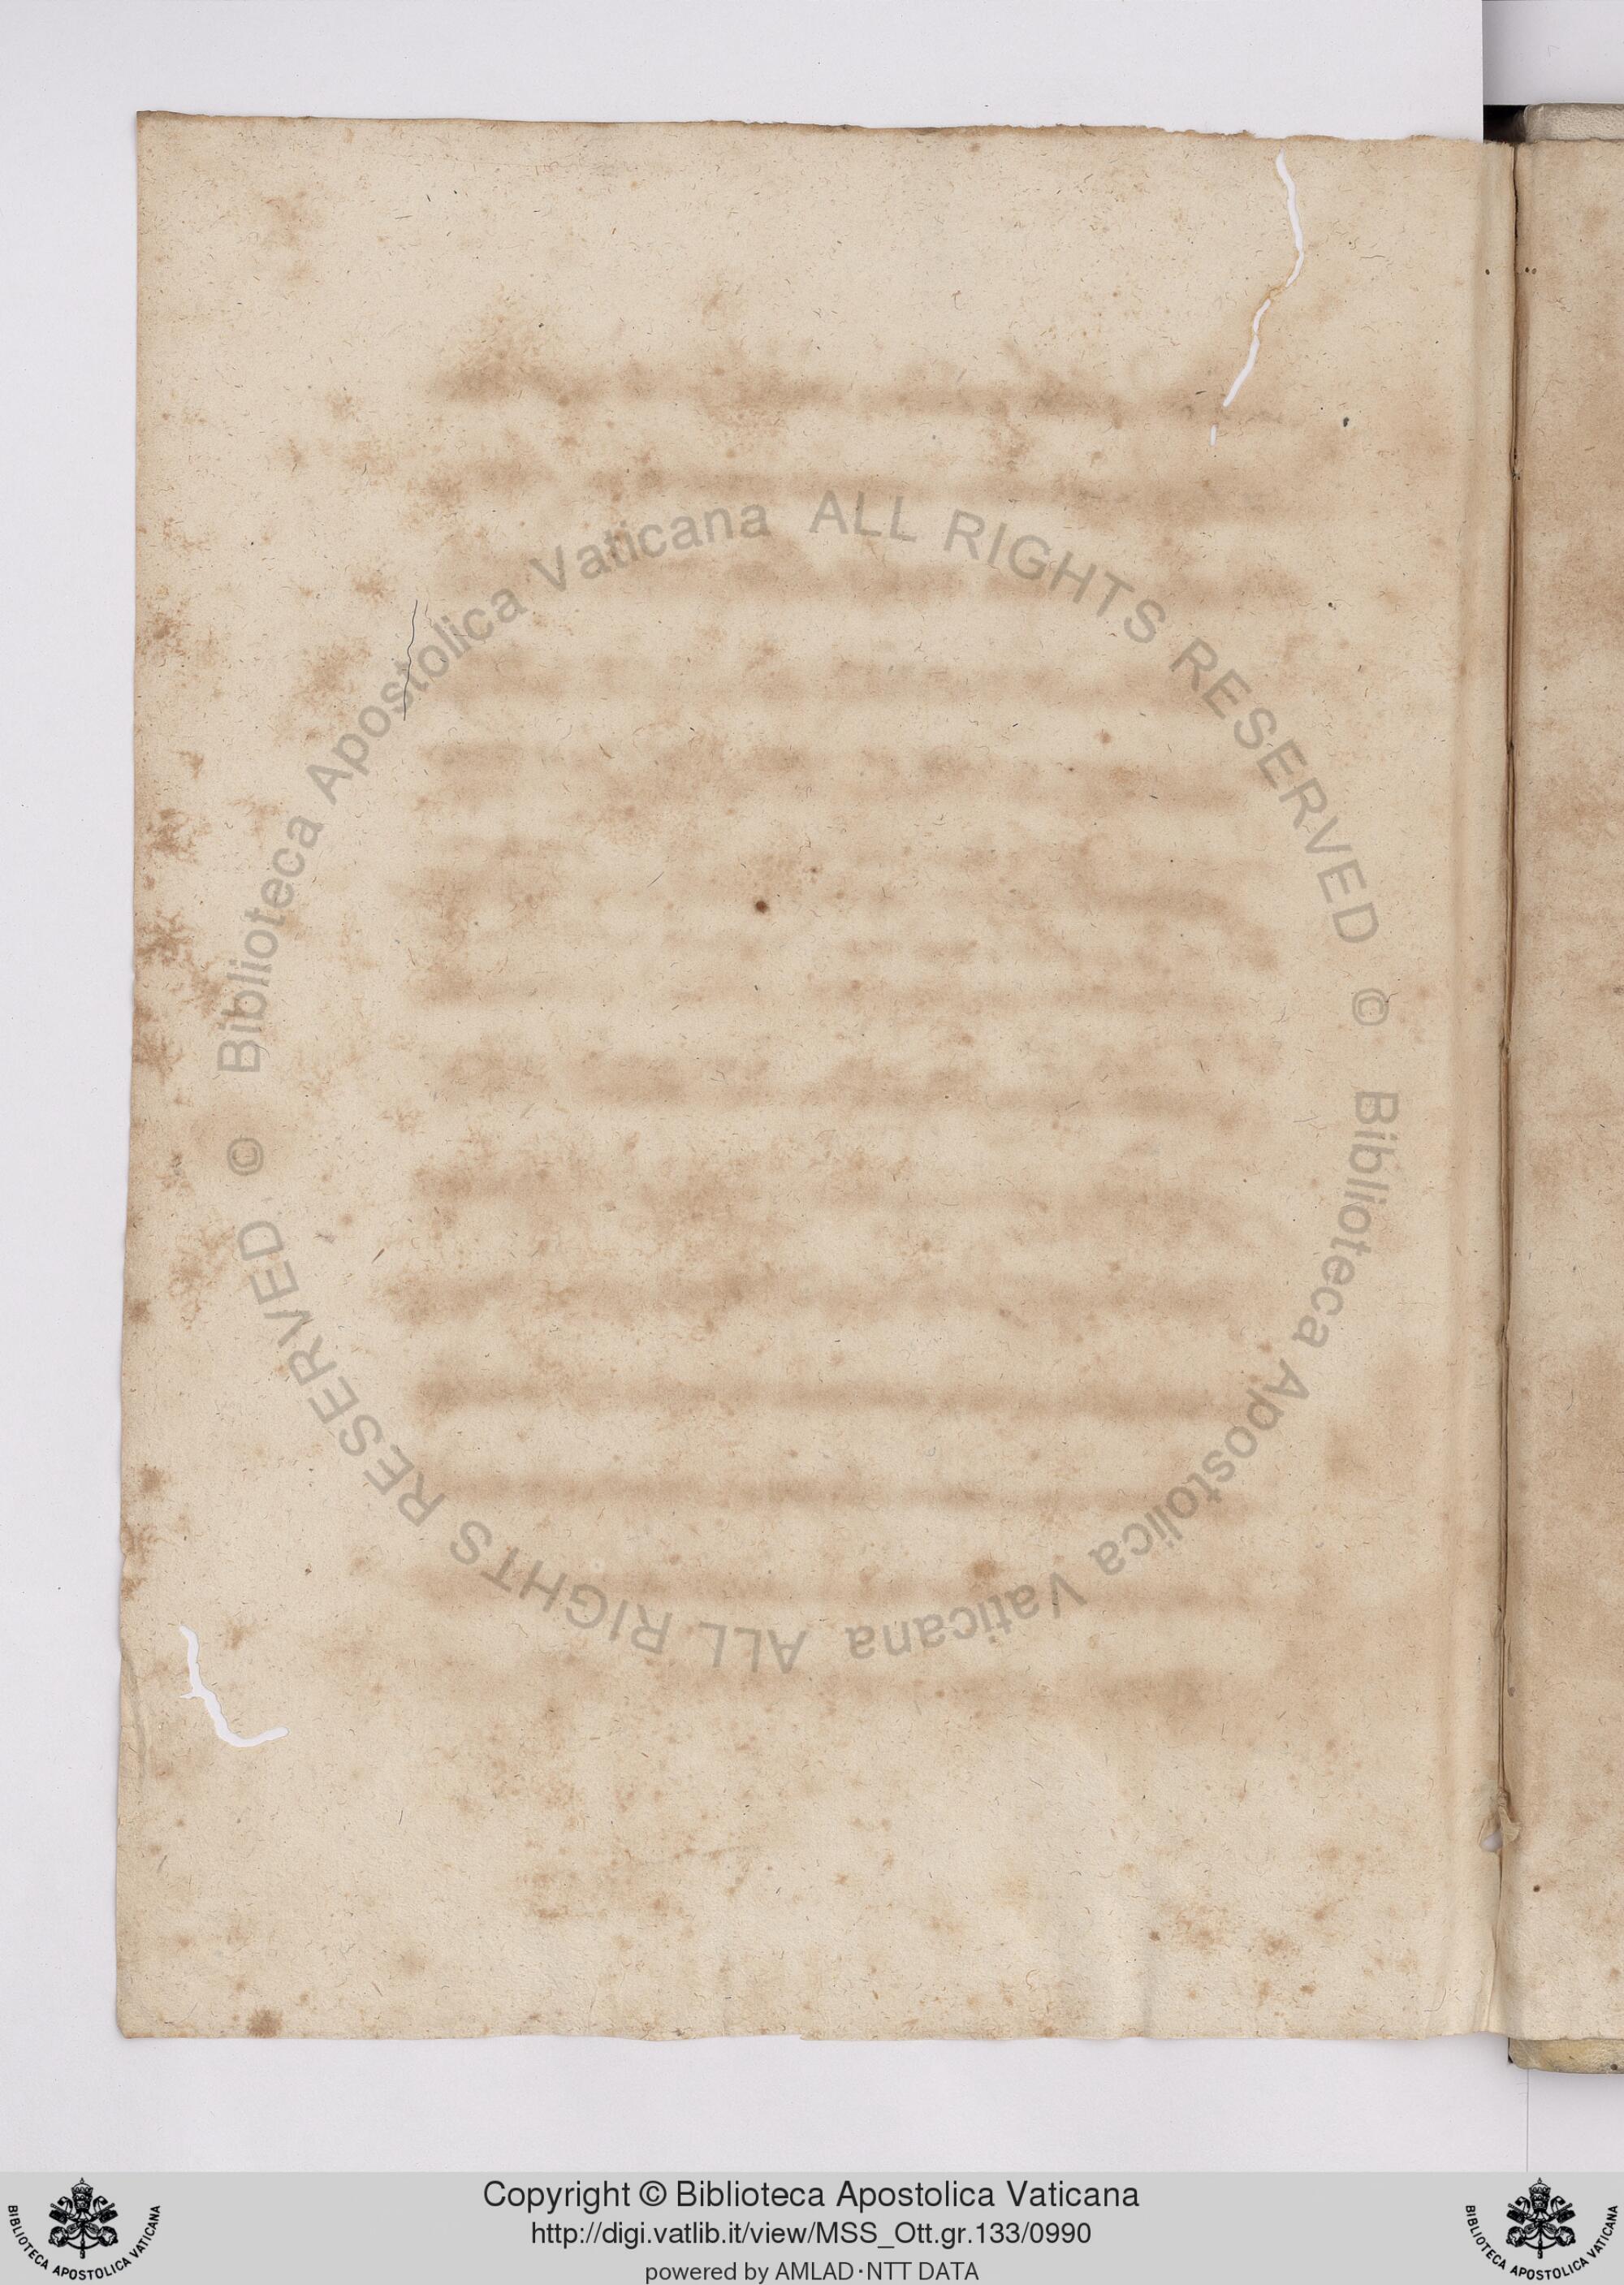 © Biblioteca Apostolica Vaticana ALL RIGHTS RESERVED
© Biblioteca Apostolica Vaticana ALL RIGHTS RESERVED
Copyright © Biblioteca Apostolica Vaticana
http://digi.vatlib.it/view/MSS_Ott.gr.133/0990
powered by AMLAD·NTT DATA
BIBLIOTECA APOSTOLICA VATICANA
BIBLIOTECA APOSTOLICA VATICANA